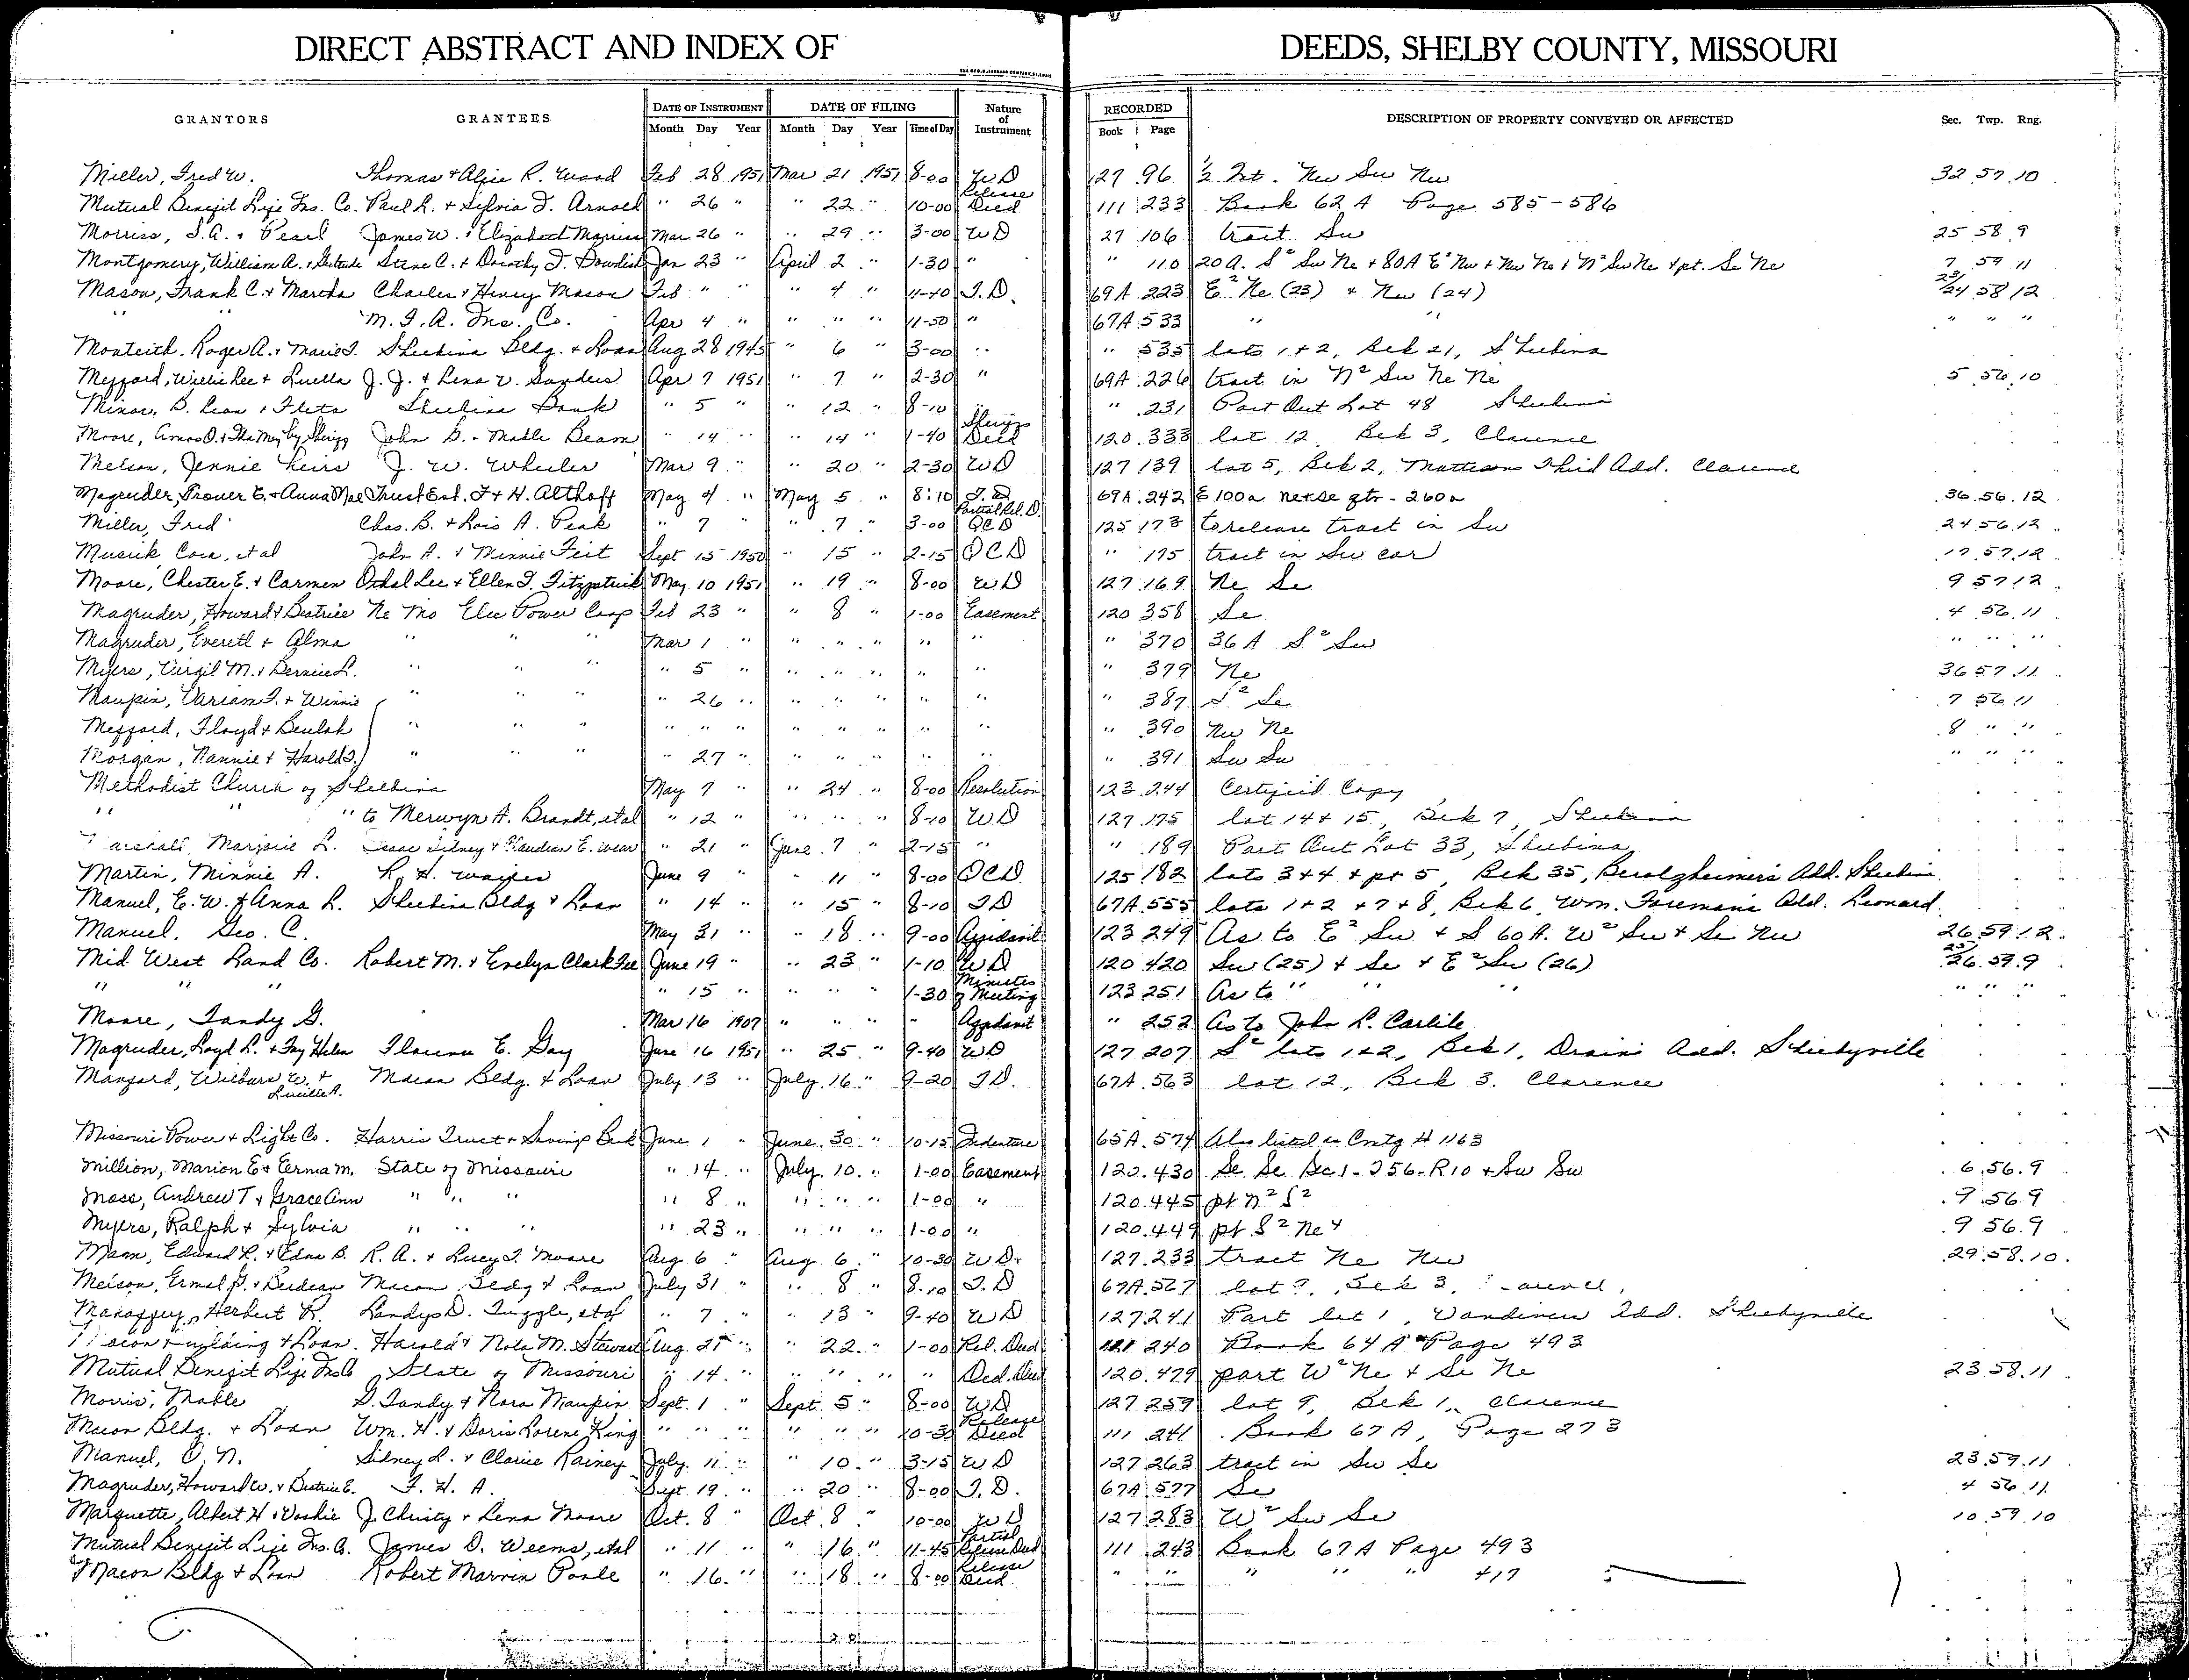 DIRECT ABSTRACT AND INDEX OF DEEDS, SHELBY COUNTY, MISSOURI
GRANTORS GRANTEES DATE OF INSTRUMENT DATE OF FILING Nature of Instrument RECORDED DESCRIPTION OF PROPERTY CONVEYED OR AFFECTED Sec. Twp. Rng.
Month Day Year Month Day Year Time of Day Book Page
Miller, Fred W. Thomas & Alice R. Wood Feb 28 1951 Mar 21 1951 8-00 WD 127 96 1/2 Int. Nw Sw Nw 32 57 10
Mutual Benefit Life Ins. Co. Paul R. & Sylvia F. Arnold " 26 " " 22 " 10-00 Release Deed 111 233 Book 62 A Page 585-586
Morriss, S.A. & Pearl James W. & Elizabeth Mar 26 " " 29 " 3-00 WD 27 106 tract Sw 25 58 9
Montgomery, William A. & Gertrude C. & Dorothy J. Dowdish Jan 23 " April 2 " 1-30 " " 110 20 A. S2 Sw Ne & 80A E2 Nw & Nw Ne & N2 Sw Ne & pt. Se Ne 7 59 11
Mason, Frank C. & Martha Charles & Henry Mason Feb " " " 4 " 11-40 T.D. 69A 223 E2 Ne (23) & Nw (24) 23/24 58 12
" " M.F.A. Ins. Co. Apr 4 " " " " 11-50 " 67A 533 " " " " "
Monteith, Roger A. & Marie F. Shelbina Bldg. & Loan Aug 28 1945 " 6 " 3-00 " " 535 lots 1 & 2, Blk 21, Shelbina
Meffard, Willie Lee & Luella J. J. & Lena V. Sanders Apr 7 1951 " 7 " 2-30 " 69A 226 tract in N2 Sw Ne Ne 5 56 10
Minor, B. Leon & Fleta Shelbina Bank " 5 " " 12 " 8-10 " " 231 Part Out Lot 48 Shelbina
Moore, Amos O. & Ida May by Sheriff John B. & Mable Beam " 14 " " 14 " 1-40 Sheriffs Deed 120 333 lot 12 Blk 3, Clarence
Melson, Jennie heirs J. W. Wheeler Mar 9 " " 20 " 2-30 WD 127 139 lot 5, Blk 2, Mattisons Third Add. Clarence
Magruder, Grover E. & Anna Mae Trust Est. F & H. Althoff May 4 " May 5 " 8:10 T.D. 69A 242 E 100a ne & se qtr - 260a 36 56 12
Miller, Fred Chas. B. & Lois A. Peak " 7 " " 7 " 3-00 Partial Rel. D. QCD 125 173 to release tract in Sw 24 56 12
Musick, Cora, et al John A. & Minnie Feit Sept 15 1950 " 15 " 2-15 QCD " 175 tract in Sw cor 17 57 12
Moore, Chester E. & Carmen Oshal Lee & Ellen F. Fitzpatrick May 10 1951 " 19 " 8-00 WD 127 169 Ne Se 9 57 12
Magruder, Howard & Beatrice Ne Mo Elec Power Coop Feb 23 " " 8 " 1-00 Easement 120 358 Se 4 56 11
Magruder, Everett & Alma " " " Mar 1 " " " " " " " 370 36 A S2 Sw " " "
Myers, Virgil M. & Bernice L. " " " " 5 " " " " " " " 379 Ne 36 57 11
Maupin, & Winnie " " " " 26 " " " " " " " 387 S2 Se 7 56 11
Meffard, Floyd & Beulah " " " " " " " " " " " " 390 Nw Ne 8 " "
Morgan, Nannie & Harold " " " " 27 " " " " " " " 391 Sw Sw " " "
Methodist Church of Shelbina May 7 " " 24 " 8-00 Resolution 123 244 Certified Copy
" " " to Merwyn H. Brandt, et al " 12 " " " " 8-10 WD 127 175 lot 14 & 15, Blk 7, Shelbina
Marshall, Marjorie L. Isaac Sidney & E. Wear " 21 " June 7 " 2-15 " " 189 Part Out Lot 33, Shelbina
Martin, Minnie A. June 9 " " 11 " 8-00 QCD 125 182 lots 3 & 4 & pt 5, Blk 35, Berolzheimers Add. Shelbina
Manuel, E. W. & Anna L. Shelbina Bldg & Loan " 14 " " 15 " 8-10 TD 67A 555 lots 1 & 2 & 7 & 8, Blk 6, Wm. Foremans Add. Leonard
Manuel, Geo. C. May 31 " " 18 " 9-00 Affidavit 123 249 As to E2 Sw & S 60 A. W2 Sw & Se Nw 26 59 12
Mid West Land Co. Robert M. & Evelyn Clark Lee June 19 " " 23 " 1-10 WD 120 420 Sw (25) & Se & E2 Sw (26) 25/26 59 9
" " " " 15 " " " " 1-30 Minutes of Meeting 123 251 As to " " " " " "
Moore, Tandy G. Mar 16 1907 " " " " Affidavit " 252 As to John L. Carlile
Magruder, Loyd L. & Fay Helen Florence E. Gay June 16 1951 " 25 " 9-40 WD 127 207 S2 lots 1 & 2, Blk 1, Drains Add. Shelbyville
Manford, Wilburn W. & Lucille A. Macon Bldg. & Loan July 13 " July 16 " 9-20 TD. 67A 563 lot 12, Blk 3. Clarence
Missouri Power & Light Co. Harris Trust & Savings Bank June 1 " June 30 " 10-15 Indenture 65A 574 Also listed in Cmtg # 1163
Million, Marion E & Erma M. State of Missouri " 14 " July 10 " 1-00 Easement 120 430 Se Se Sec 1-T56-R10 & Sw Sw 6 56 9
Moss, Andrew T & Grace Ann " " " " 8 " " " " 1-00 " 120 445 pt N2 S2 7 56 9
Myers, Ralph & Sylvia " " " " 23 " " " " 1-00 " 120 449 pt S2 Ne4 9 56 9
Mann, Edward R. & Edna B. R. A. & Lucy F. Moore Aug 6 " Aug 6 " 10-30 WD. 127 233 tract Ne Nw 29 58 10
Melson, Ermal & Macon Bldg & Loan July 31 " " 8 " 8-10 T.D 67A 567 lot Blk 3,
Mahaffey, Herbert R. Landys D. Tuggle, et al " 7 " " 13 " 9-40 WD 127 241 Part lot 1, Vandivers Add. Shelbyville
Macon Building & Loan. Harold & Nola M. Stewart Aug. 25 " " 22 " 1-00 Rel. Deed 111 240 Book 64 A Page 493
Mutual Benefit Life Ins Co State of Missouri " 14 " " " " " Ded. Deed 120 479 part W2 Ne & Se Ne 23 58 11
Morris, Mable G. Tandy & Nora Maupin Sept. 1 " Sept 5 " 8-00 WD 127 259 lot 9, Blk 1, Clarence
Macon Bldg. & Loan Wm. H. & Doris Lorene King " " " " " " 10-30 Release Deed 111 241 Book 67 A, Page 273
Manuel, O. N. Sidney L. & Clarice Rainey July 11 " " 10 " 3-15 WD 127 263 tract in Sw Se 23 59 11
Magruder, Howard W. & Beatrice E. F. H. A. Sept. 19 " " 20 " 8-00 T.D. 67A 577 Se 4 56 11
Marquette, Albert H & Voskie J. Christy & Lena Moore Oct. 8 " Oct 8 " 10-00 WD 127 283 W2 Sw Se 10 59 10
Mutual Benefit Life Ins. Co. James D. Weems, et al " 11 " " 16 " 11-45 Partial Release Deed 111 243 Book 67 A Page 493
Macon Bldg & Loan Robert Marvin Poole " 16 " " 18 " 8-00 Release Deed " " " " " 417